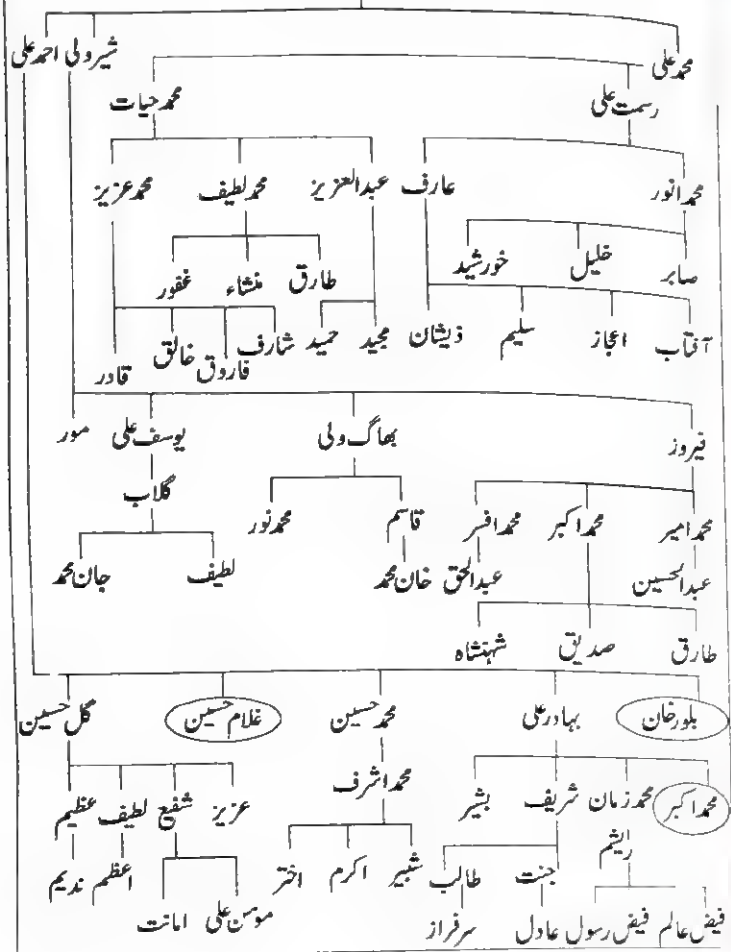 محمد علی شیر ولی احمد علی
رسمت علی محمد حیات
محمد انور عارف عبدالعزیز محمد لطیف محمد عزیز
صابر خلیل خورشید طارق منشاء غفور
آفتاب اعجاز سلیم ذیشان مجید حمید شارف فاروق خالق قادر
فیروز بھاگ ولی یوسف علی مور
گلاب
محمد امیر محمد اکبر محمد افسر قاسم محمد نور
عبدالحسین عبدالحق خان محمد لطیف جان محمد
طارق صدیق شہنشاہ
بلور خان بہادر علی محمد حسین غلام حسین گل حسین
محمد اشرف
محمد اکبر محمد زمان شریف بشیر عزیز شفیع لطیف عظیم
ریشم
جنت طالب شبیر اکرم اختر اعظم ندیم
فیض عالم فیض رسول عادل سرفراز مومن علی امانت